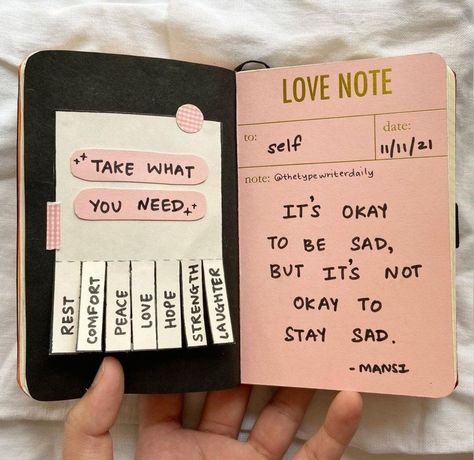 TAKE WHAT
YOU NEED
REST
COMFORT
PEACE
LOVE
HOPE
STRENGTH
LAUGHTER
LOVE NOTE
to: self
date: 11/11/21
note: @thetypewriterdaily
IT'S OKAY
TO BE SAD,
BUT IT'S NOT
OKAY TO
STAY SAD.
-MANSI